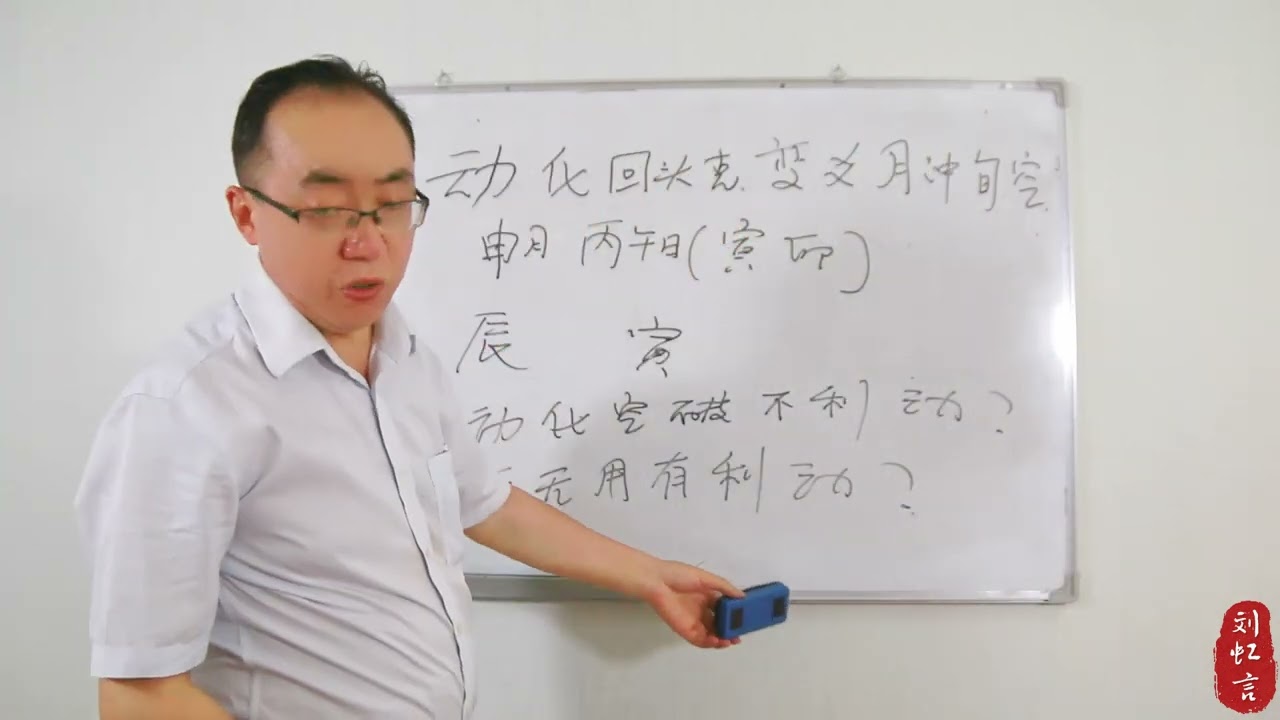 动化回头克变爻月冲旬空
申月 丙午日(寅卯)
辰 寅
动化空破不利动?
无用有利动?
刘虹言